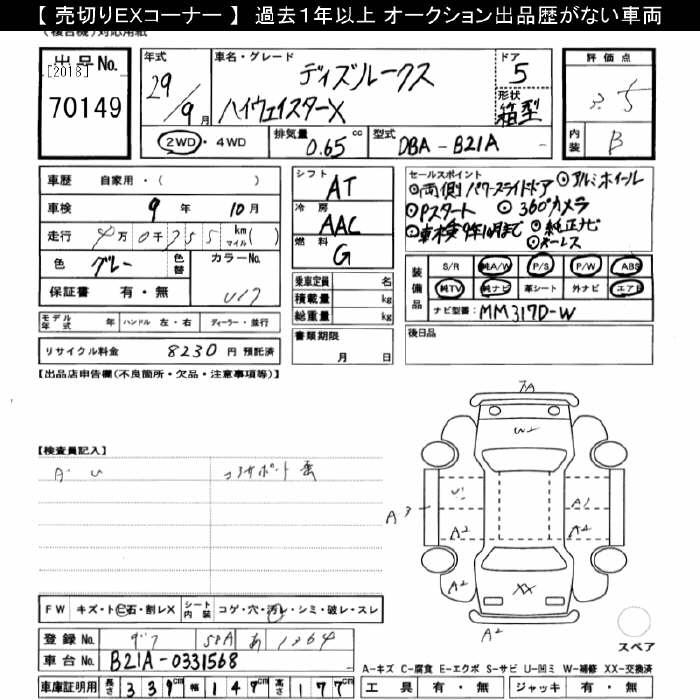 【 売切りEXコーナー 】 過去１年以上 オークション出品歴がない車両
(複合機)対応用紙
出品No.
[2018]
70149
年式
29/9月
車名・グレード
ディズルークス
ハイウェイスターX
ドア
5
形状
箱型
2WD・4WD
排気量 0.65 cc
型式 DBA - B21A
評価点
3.5
内装 B
車歴 自家用・( )
車検 9年 10月
走行 4万0千755 km マイル( )
色 グレー
色替
カラーNo.
保証書 有・無
シフト AT
冷房 AAC
燃料 G
乗車定員 名
積載量 kg
総重量 kg
セールスポイント
◎両側パワースライドドア ◎アルミホイール
◎Pスタート ◎360°カメラ
◎車検9年10月まで ◎純正ナビ
◎キーレス
装備品
S/R 純A/W P/S P/W ABS
純TV 純ナビ 革シート 外ナビ エアB
ナビ型番: MM317D-W
モデル年式 年 ハンドル 左・右 ディーラー・並行
書類期限 月 日
後日品
リサイクル料金 8230 円 預託済
【出品店申告欄(不良箇所・欠品・注意事項等)】
【検査員記入】
A・U
コアサポート
7A
W2
U1
A1
A3
A2
A2
A2
XX
A2
A2
スペア
FW キズ・ヒ石・割レX シート内装 コゲ・穴・汚レ・シミ・破レ・スレ
登録No. 58A あ 1364
車台No. B21A-0331568
車庫証明用 長さ 339cm 幅 147cm 高さ 177cm
A-キズ C-腐食 E-エクボ S-サビ U-凹ミ W-補修 XX-交換済
工具 有・無 ジャッキ 有・無